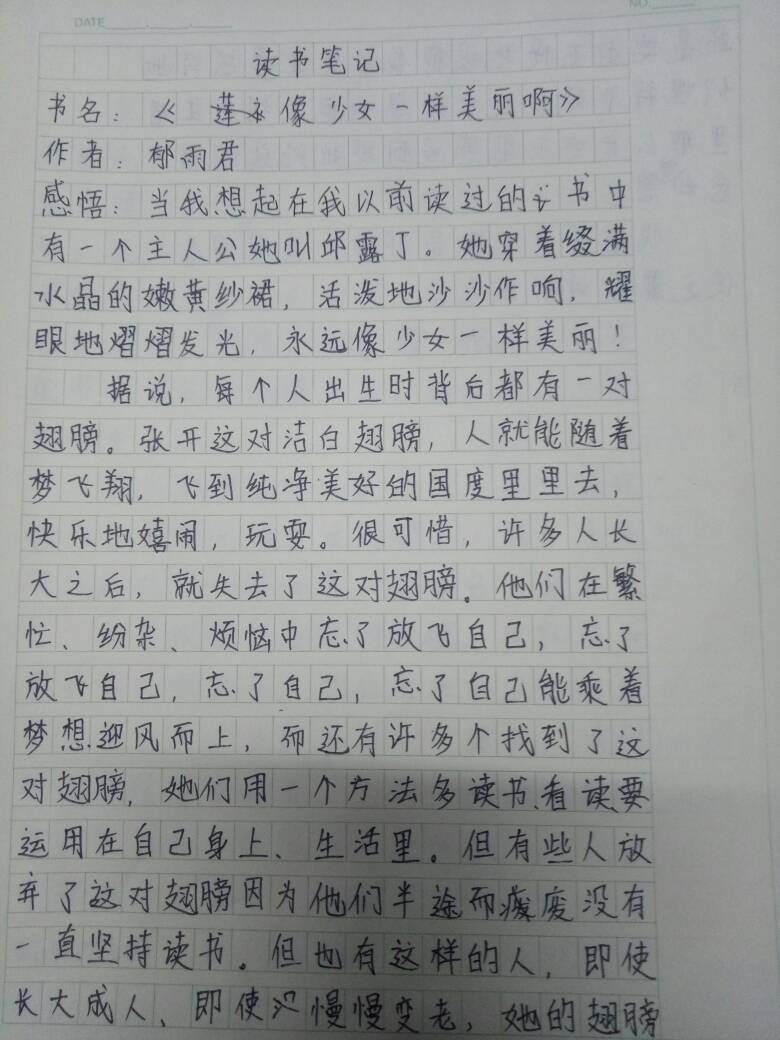 DATE
NO.
读书笔记
书名：《 莲 像少女一样美丽啊》
作者：郁雨君
感悟：当我想起在我以前读过的书中
有一个主人公她叫邱露丁。她穿着缀满
水晶的嫩黄纱裙，活泼地沙沙作响，耀
眼地熠熠发光，永远像少女一样美丽！
据说，每个人出生时背后都有一对
翅膀。张开这对洁白翅膀，人就能随着
梦飞翔，飞到纯净美好的国度里里去，
快乐地嬉闹，玩耍。很可惜，许多人长
大之后，就失去了这对翅膀。他们在繁
忙、纷杂、烦恼中忘了放飞自己，忘了
放飞自己，忘了自己，忘了自己能乘着
梦想迎风而上，而还有许多个找到了这
对翅膀，她们用一个方法多读书、看读要
运用在自己身上、生活里。但有些人放
弃了这对翅膀因为他们半途而废没有
一直坚持读书。但也有这样的人，即使
长大成人、即使慢慢变老，她的翅膀